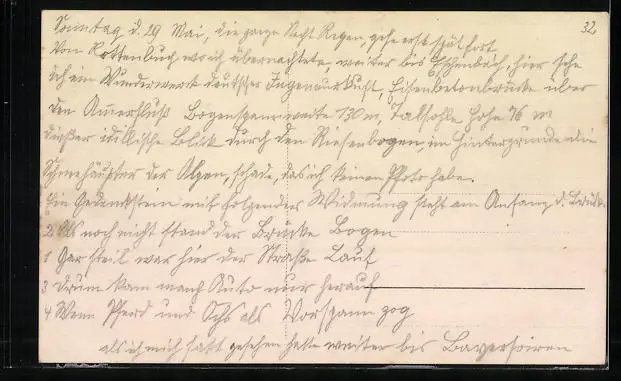 32
Sonntag d. 29 Mai, die ganze Nacht Regen, gehe erst spät fort
Von Rottenbuch wo ich übernachtete, weiter bis Eschenbach, hier sehe
ich ein Wunderwerk deutscher Ingeneurkunst, Eisenbetonbrücke über
den Ammerfluß Bogenspannweite 130 m, Talsohle Höhe 76 m
dießer idillische Blick durch den Riesenbogen, im Hintergrunde die
Schneehäubter der Alpen, schade, das ich keinen Photo habe.
Ein Gedenkstein mit folgender Widmung steht am Anfang d. Brücke
2 Als noch nicht stand der Brücke Bogen
1 Gar steil war hier der Straße Lauf
3 Drum kam manch Auto nur herauf
4 Wenn Pferd und Ochs als Vorspann zog
als ich mich satt gesehen hatte weiter bis Bayersoiren